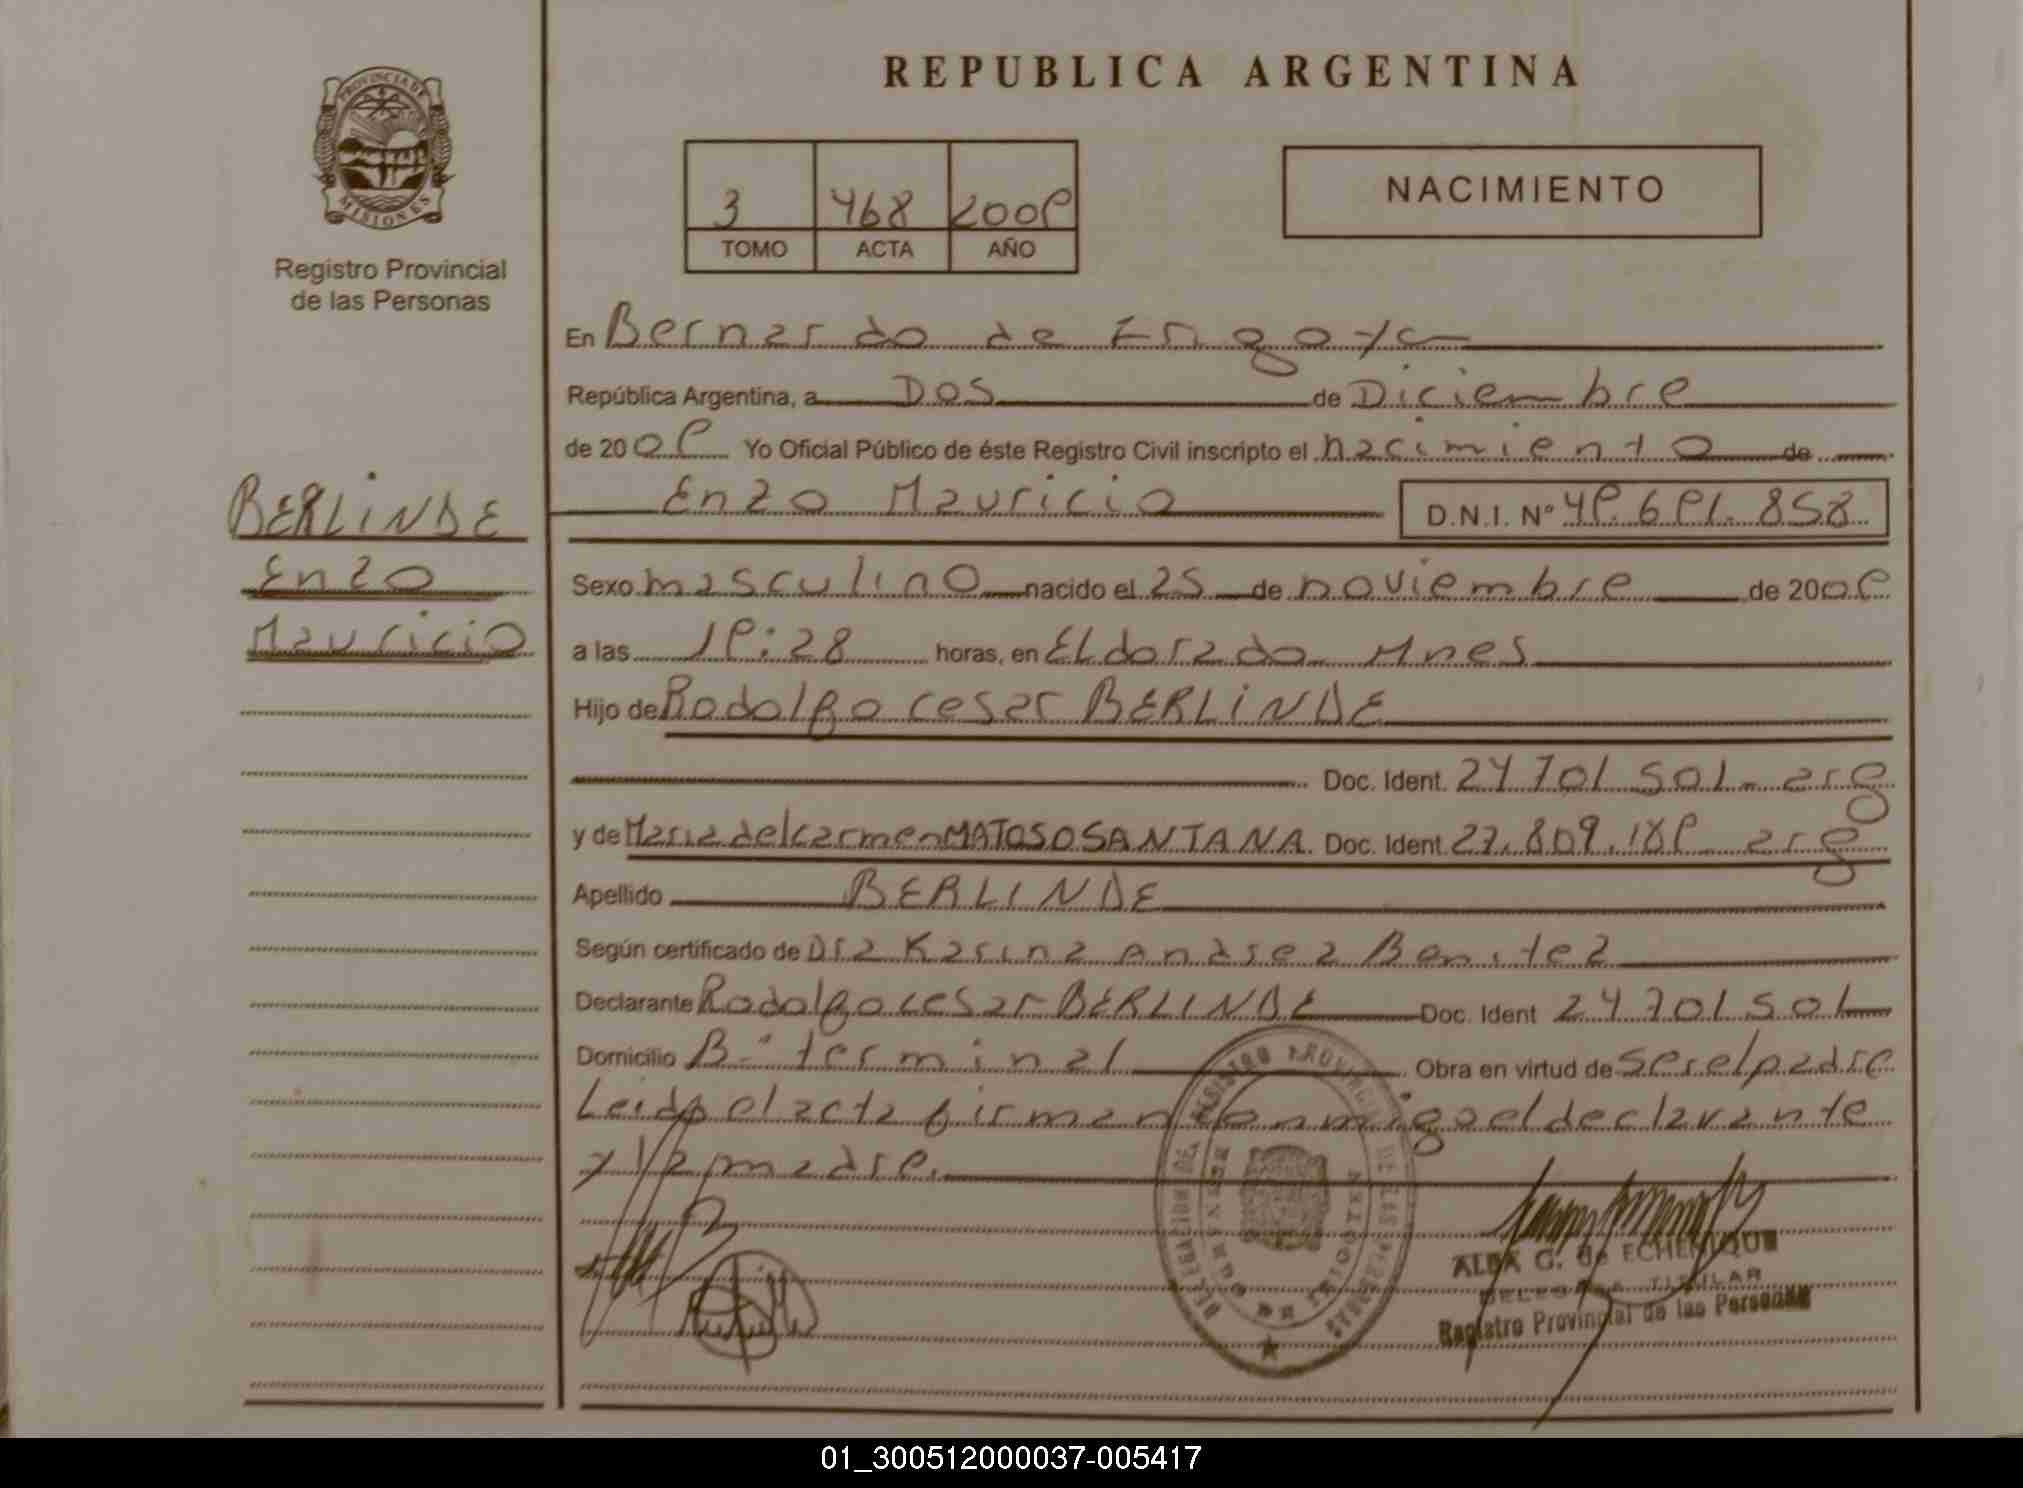 PROVINCIA DE
MISIONES
Registro Provincial
de las Personas
REPUBLICA ARGENTINA
3 468 2009
TOMO ACTA AÑO
NACIMIENTO
En Bernardo de Irigoyen
República Argentina, a DOS de Diciembre
de 2009 Yo Oficial Público de éste Registro Civil inscripto el nacimiento de
Enzo Mauricio D.N.I. N° 49.691.858
BERLINDE
Enzo
Mauricio
Sexo masculino nacido el 25 de noviembre de 2009
a las 19:28 horas, en Eldorado Mnes
Hijo de Rodolfo cesar BERLINDE
Doc. Ident. 24.701.501- arg
y de Maria del carmen MATOSO SANTANA Doc. Ident. 27.809.189 arg
Apellido BERLINDE
Según certificado de Dra Karina Andrea Benitez
Declarante Rodolfo cesar BERLINDE Doc. Ident 24.701.501
Domicilio B.° terminal Obra en virtud de ser el padre
Leida el acta firman conmigo el declarante
y la madre.
DELEGACION DEL REGISTRO PROVINCIAL DE LAS PERSONAS
BERNARDO DE IRIGOYEN
ALBA G. de ECHENIQUE
DELEGADA TITULAR
Registro Provincial de las Personas
01_300512000037-005417